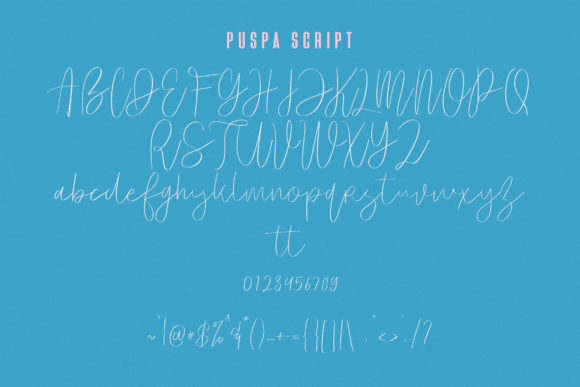 PUSPA SCRIPT
ABCDEFGHIJKLMNOPQ
RSTUVWXYZ
abcdefghijklmnopqrstuvwxyz
tt
0123456789
~`|@#$%^&*()_+-={}[]|\:."<>',/?